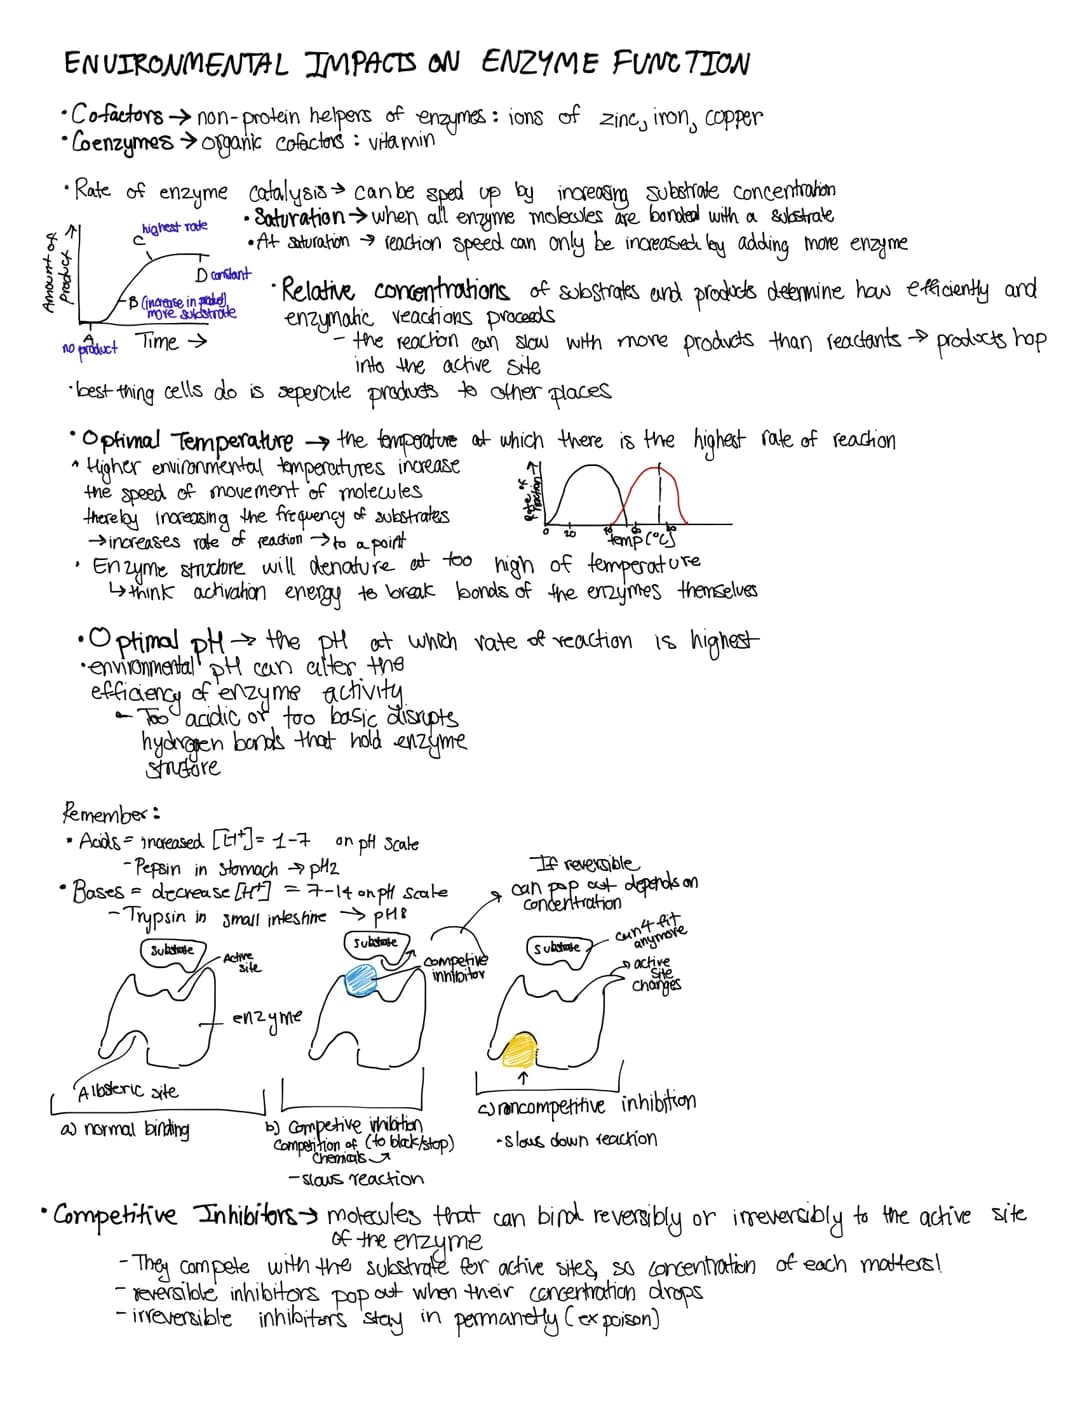 ENVIRONMENTAL IMPACTS ON ENZYME FUNCTION
• Cofactors → non-protein helpers of enzymes : ions of zinc, iron, copper
• Coenzymes → organic cofactors : vitamin
• Rate of enzyme catalysis → can be sped up by increasing substrate concentration
• Saturation → when all enzyme molecules are bonded with a substrate
• At saturation → reaction speed can only be increased by adding more enzyme
Amount of Product →
highest rate
C
D constant
B (increase in product)
more substrate
A
no product
Time →
• Relative concentrations of substrates and products determine how efficiently and
enzymatic reactions proceeds
- the reaction can slow with more products than reactants → products hop
into the active site
• best thing cells do is seperate products to other places
• Optimal Temperature → the temperature at which there is the highest rate of reaction
^ Higher environmental temperatures increase
the speed of movement of molecules
thereby increasing the frequency of substrates
→ increases rate of reaction → to a point
Rate of reaction →
0 20
temp (°C)
• Enzyme structure will denature at too high of temperature
↳ think activation energy to break bonds of the enzymes themselves
• Optimal pH → the pH at which rate of reaction is highest
• environmental pH can alter the
efficiency of enzyme activity
- Too acidic or too basic disrupts
hydrogen bonds that hold enzyme
struture
Remember :
• Acids = increased [H+] = 1-7 on pH scale
- Pepsin in stomach → pH2
• Bases = decrease [H+] = 7-14 on pH scale
- Trypsin in small intestine → pH8
If reversible
can pop out depends on
concentration
Substrate
Active
site
enzyme
Allosteric site
a) normal binding
Substrate
competive
inhibitor
b) Competive inhibition
Competition of (to block/stop)
Chemicals
- slows reaction
Substrate
can't fit
anymore
→ active
site
changes
c) noncompetitive inhibition
- slows down reaction
• Competitive Inhibitors → molecules that can bind reversibly or irreversibly to the active site
of the enzyme
- They compete with the substrate for active sites, so concentration of each matters!
- reversible inhibitors pop out when their concentration drops
- irreversible inhibitors stay in permanetly (ex poison)